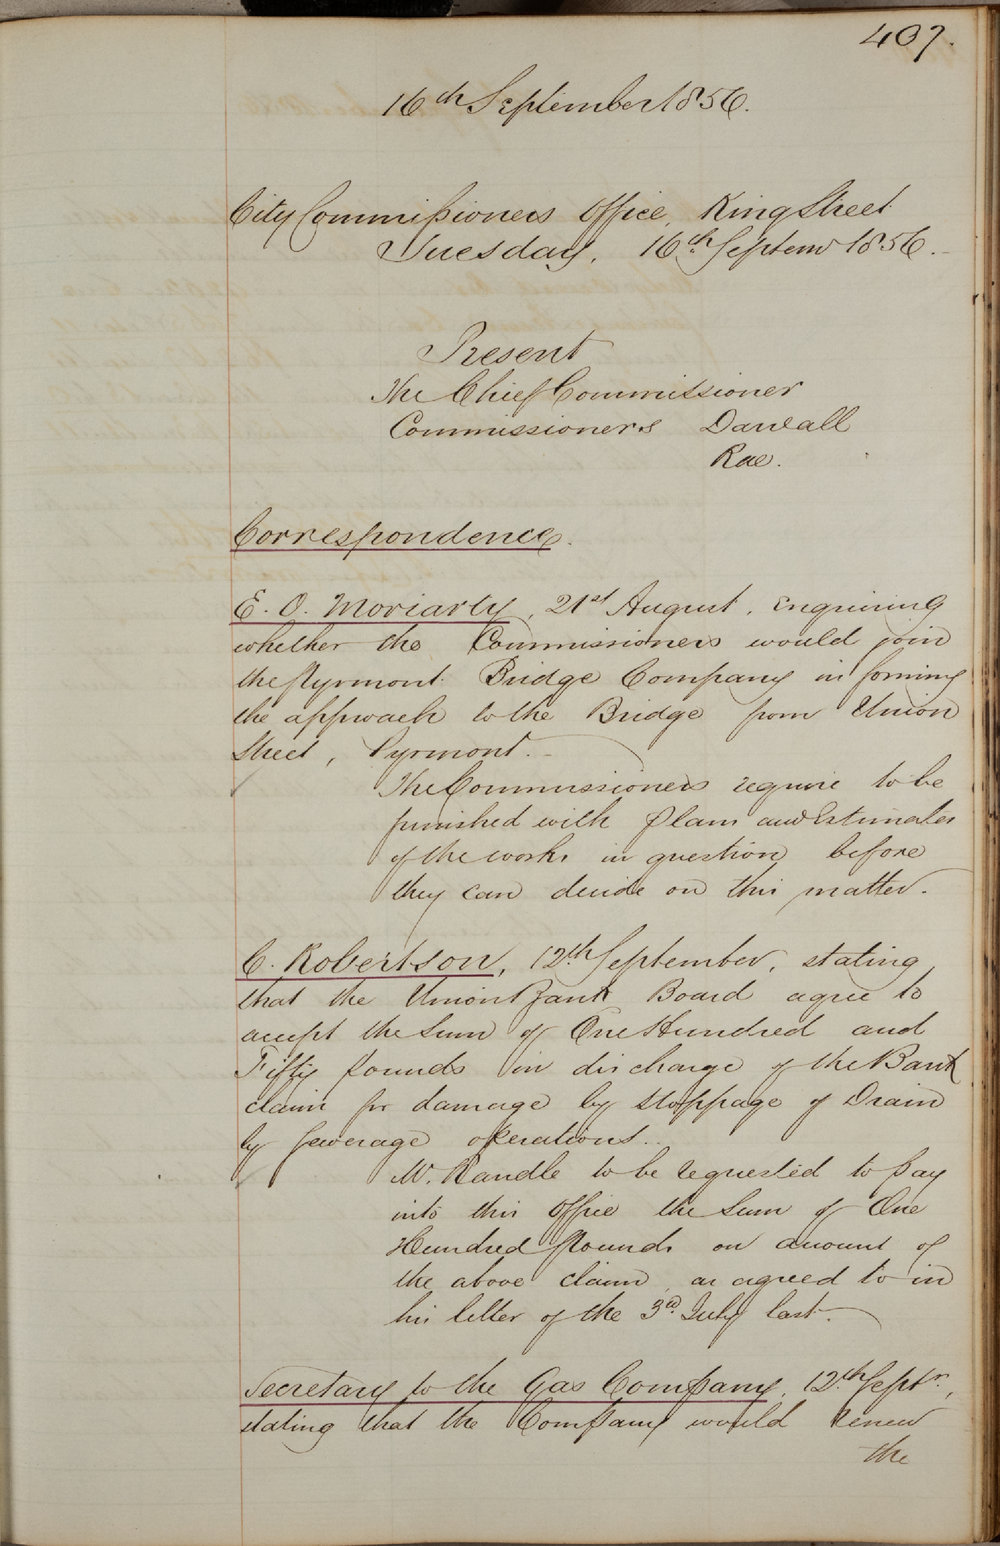 407.
16th September 1856.
City Commissioners Office, King Street
Tuesday, 16th Septemr 1856.
Present
The Chief Commissioner
Commissioners Darvall
Rae.
Correspondence.
E. O. Moriarty, 21st August, enquiring
whether the Commissioners would join
the Pyrmont Bridge Company in forming
the approach to the Bridge from Union
Street, Pyrmont.
The Commissioners require to be
furnished with plans and Estimates
of the works in question before
they can decide on this matter.
C. Robertson, 12th September, stating
that the Union Bank Board agree to
accept the Sum of One Hundred and
Fifty Pounds in discharge of the Bank
claim for damage by stoppage of Drain
by Sewerage operations.
Mr. Randle to be requested to pay
into this Office the Sum of One
Hundred Pounds on account of
the above claim as agreed to in
his letter of the 3rd July last.
Secretary to the Gas Company, 12th Septr.,
stating that the Company would renew
the